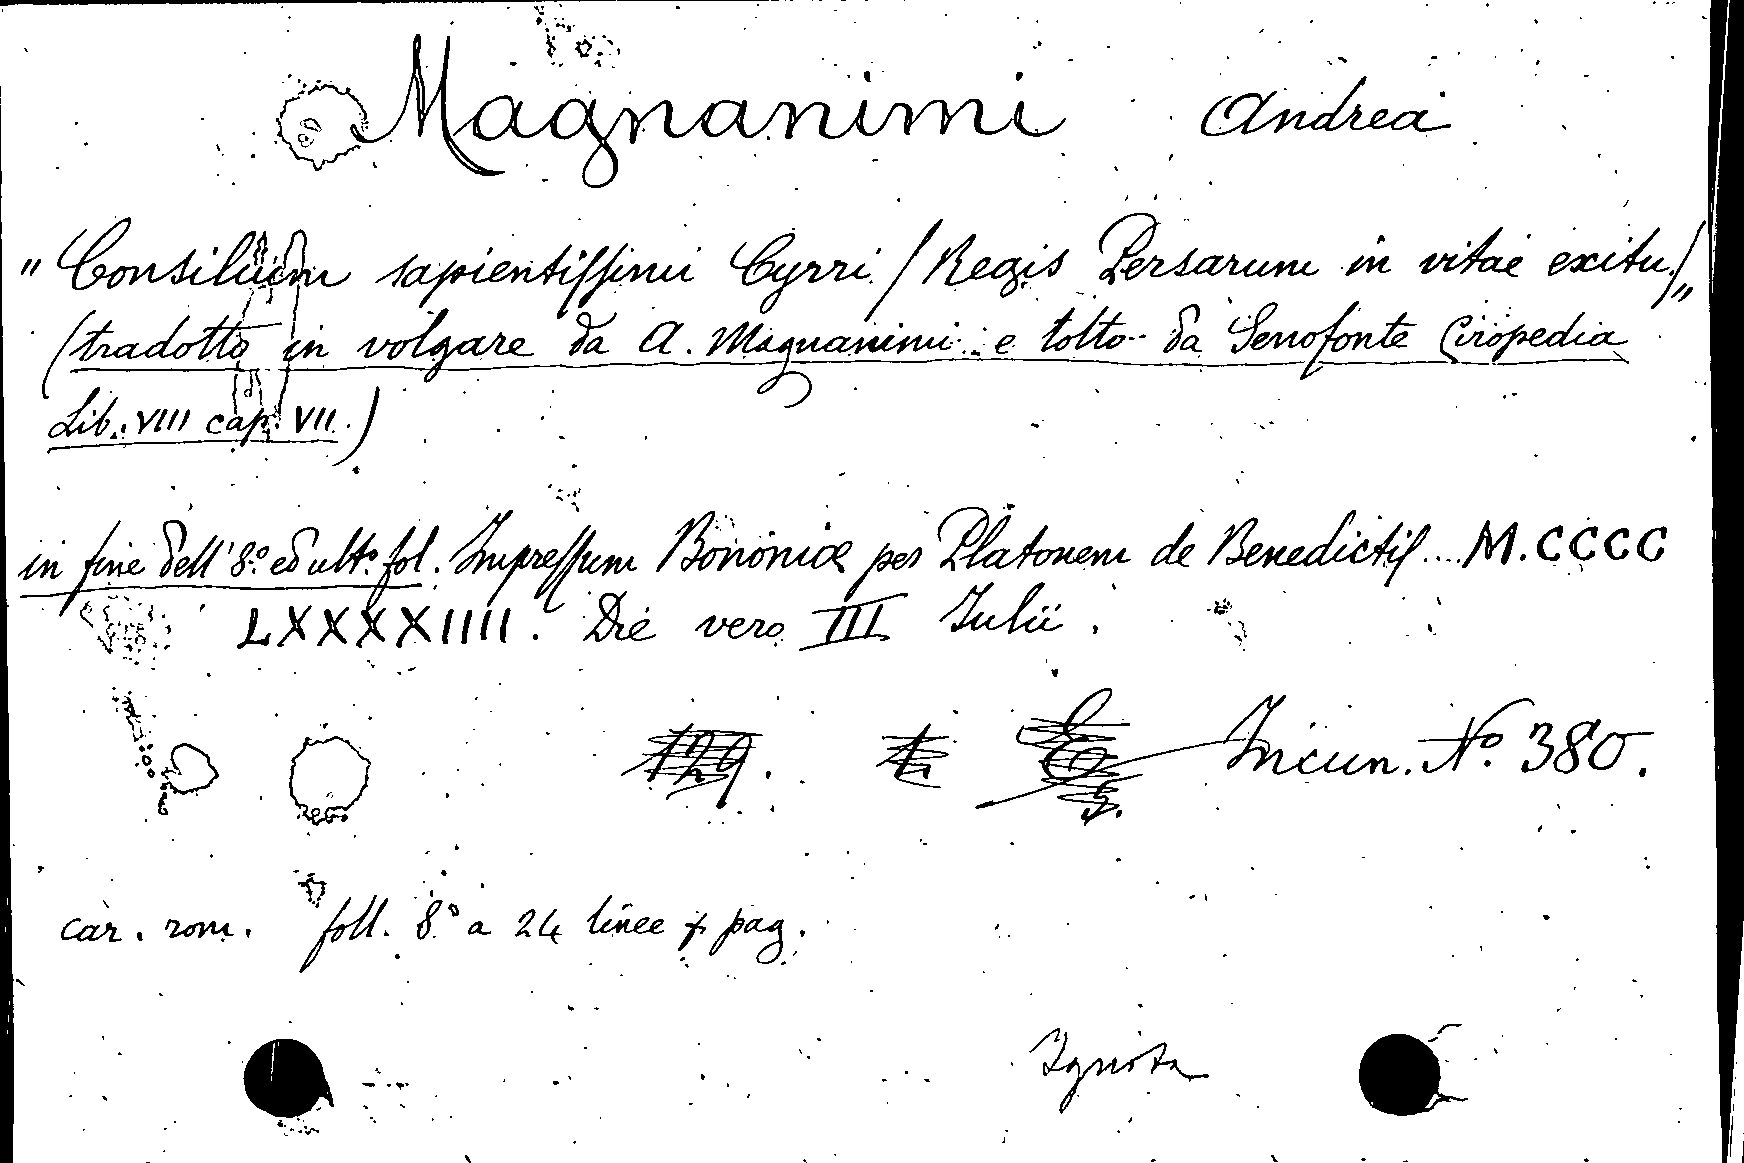 Magnanimi Andrea
"Consilium sapientissimi Cyrri / Regis Persarum in vitae exitu /"
(tradotto in volgare da A. Magnanimi e tolto da Senofonte Ciropedia
Lib. VIII cap. VII.)
in fine dell' 8.º ed ult.º fol. Impressum Bononiæ per Platonem de Benedictis .... M.CCCC
LXXXXIIII. Die vero III Iulii.
129. Incun. Nº. 380.
car. rom. foll. 8º a 24 linee p. pag.
Ignota